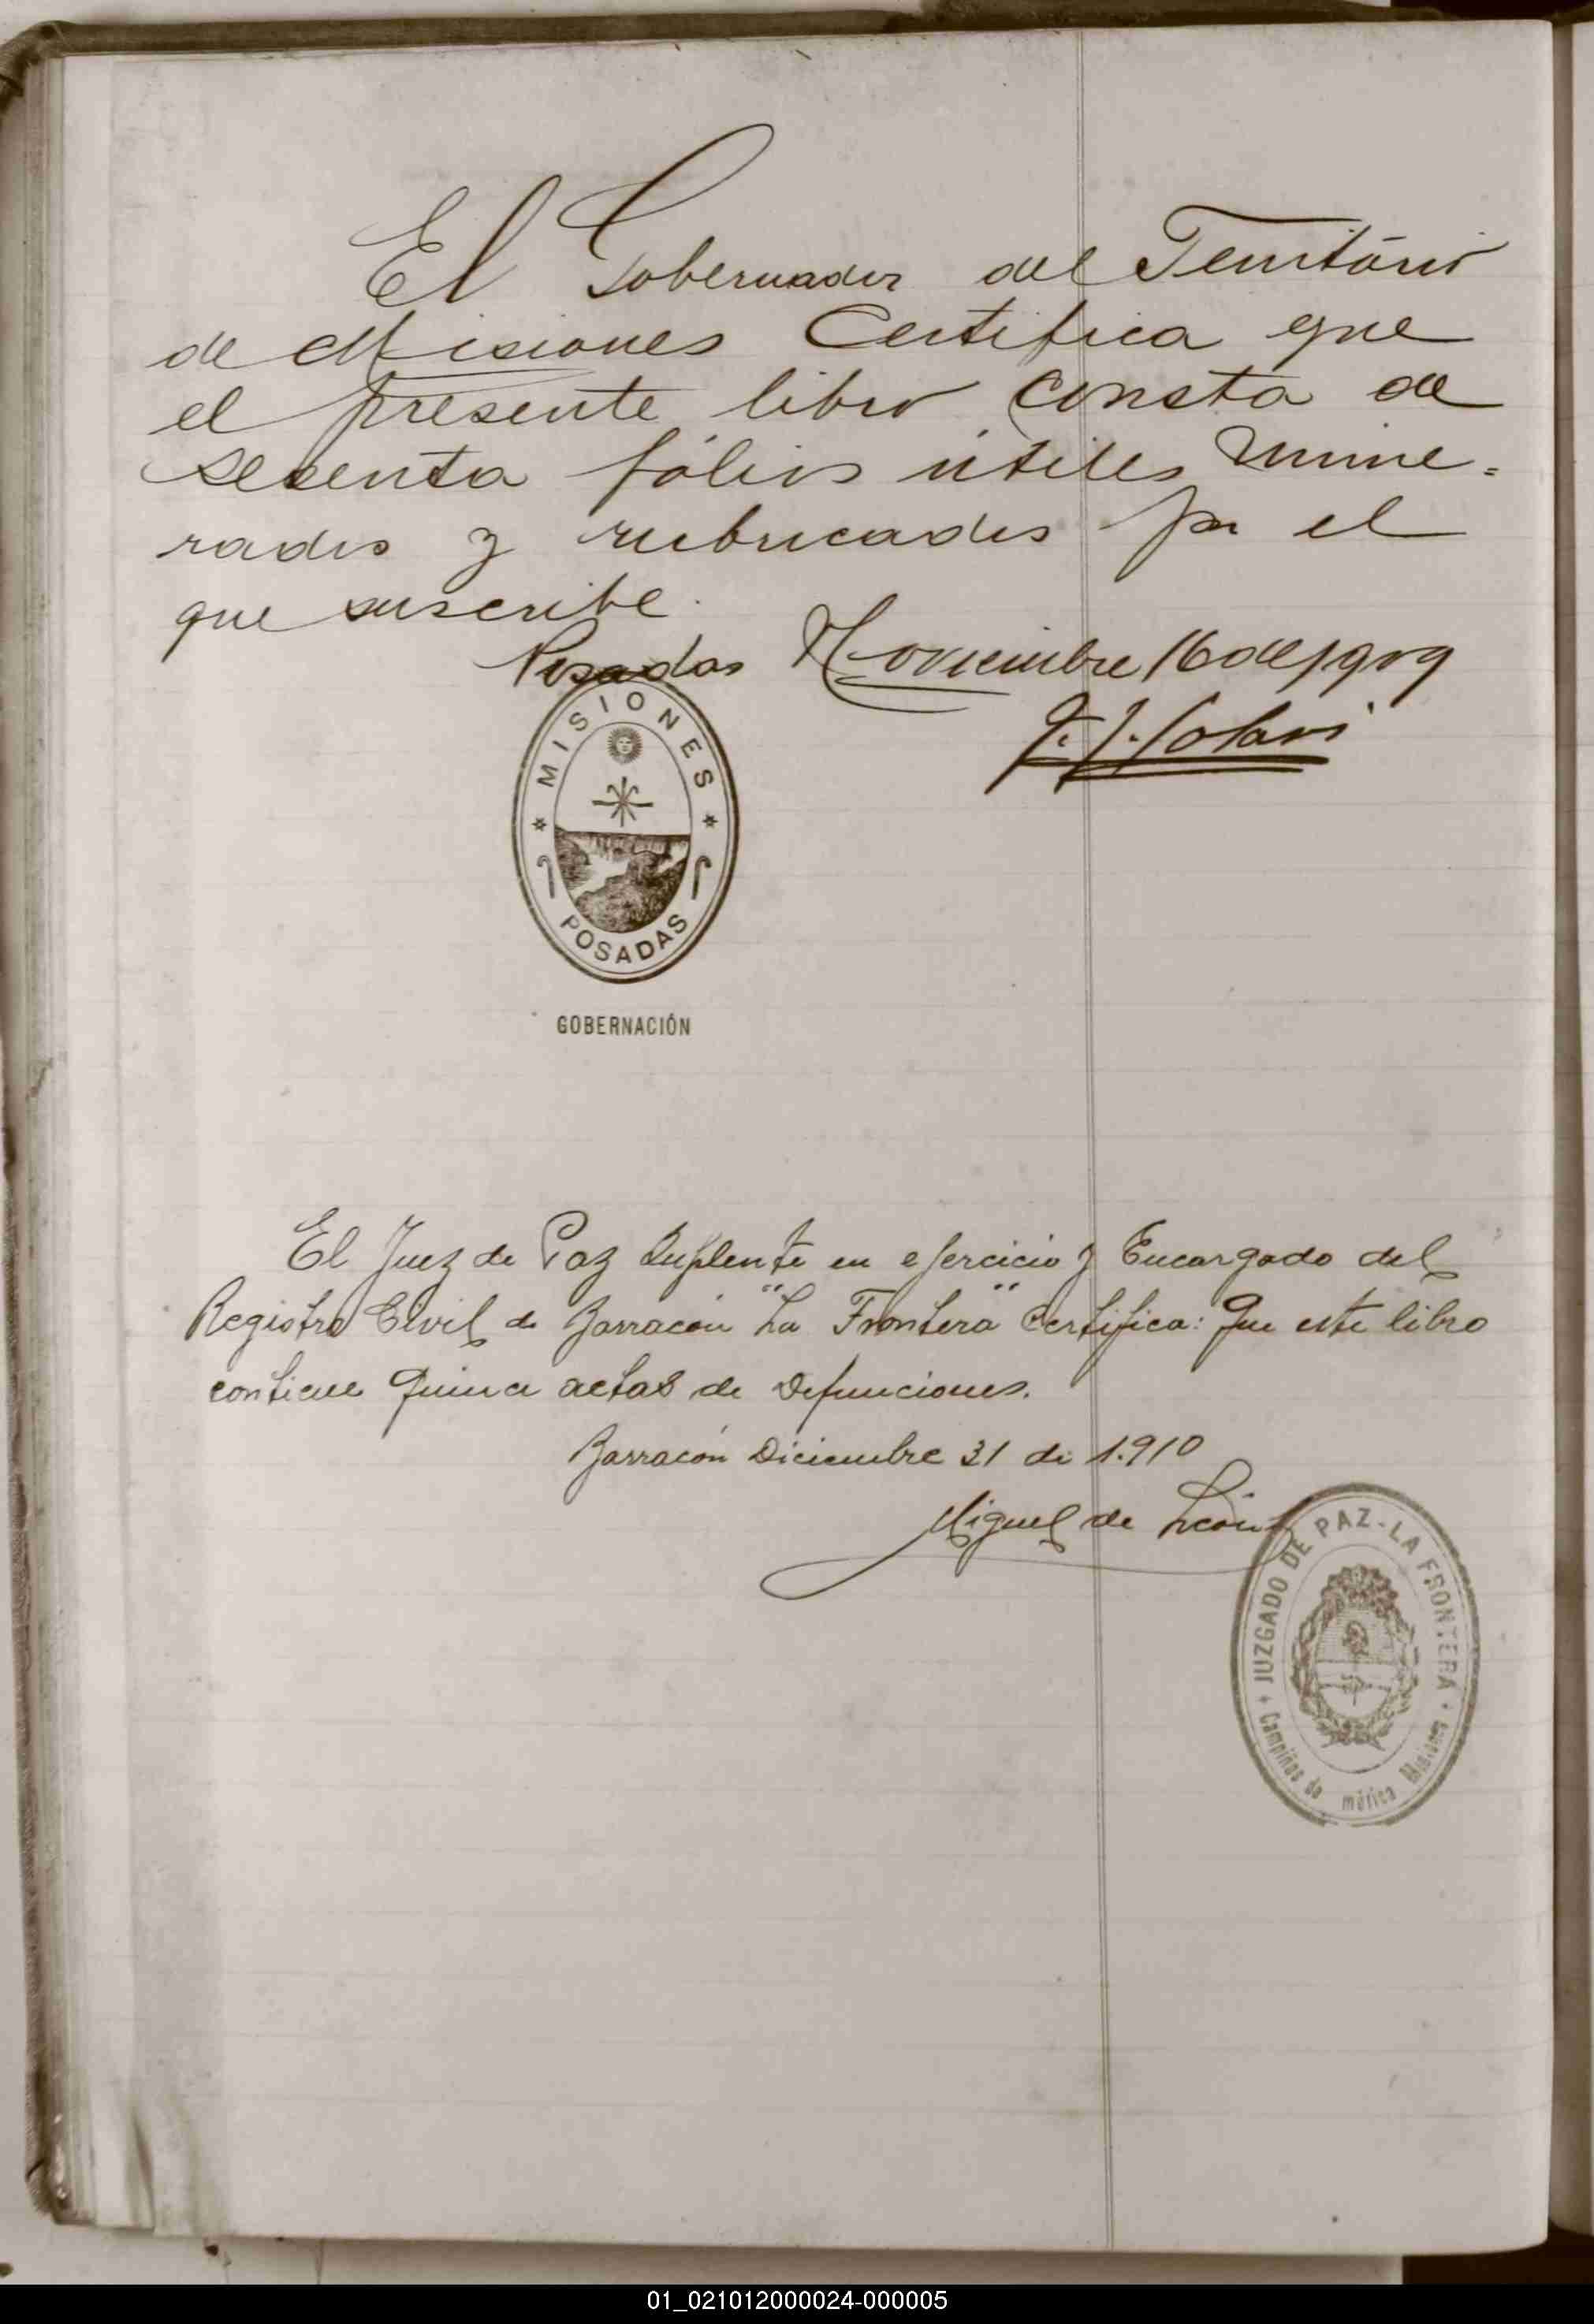 El Gobernador del Território
de Misiones Certifica que
el presente libro consta de
sesenta fólios útiles nume=
rados y rubricados por el
que suscribe.
Posadas Noviembre 16 de 1909
MISIONES
POSADAS
GOBERNACIÓN
El Juez de Paz Suplente en ejercicio y Encargado del
Registro Civil de Barracón "La Frontera" Certifica: Que este libro
contiene Quince actas de Defunciones.
Barracón Diciembre 31 de 1.910
Miguel de León
JUZGADO DE PAZ - LA FRONTERA
Campiñas de América Misiones
01_021012000024-000005